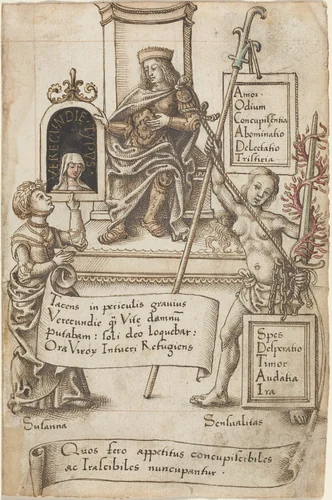 VERECUNDIE
Amor·
Odium
Concupisentia
Abominatio
Delectatio
Tristicia
Iacens in periculis gravius
Verecundie q̃ Vite damnũ
Putabam: soli deo loquebar:
Ora Viroꝝ Intueri Refugiens
Spes
Desperatio
Timor
Audatia
Ira
Susanna
Sensualitas
Quos fero appetitus concupiscibiles
ac Irascibiles nuncupantur·